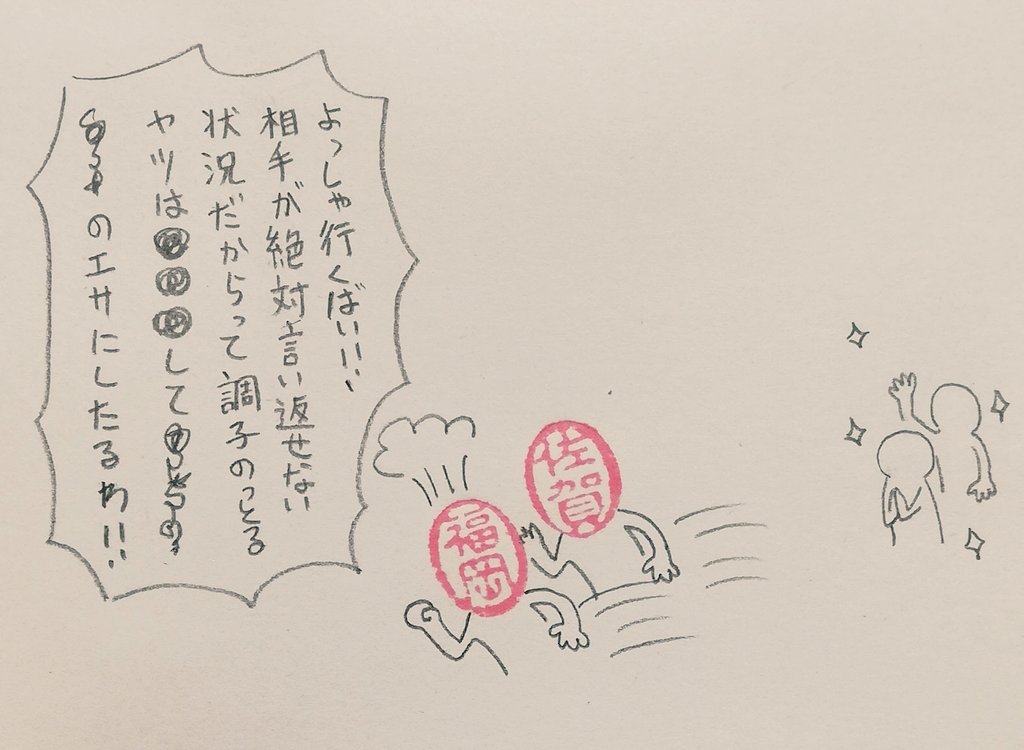 よっしゃ行くばい!!!
相手が絶対言い返せない
状況だからって調子のっとる
ヤツは して
のエサにしたるわ!!
佐賀
福岡